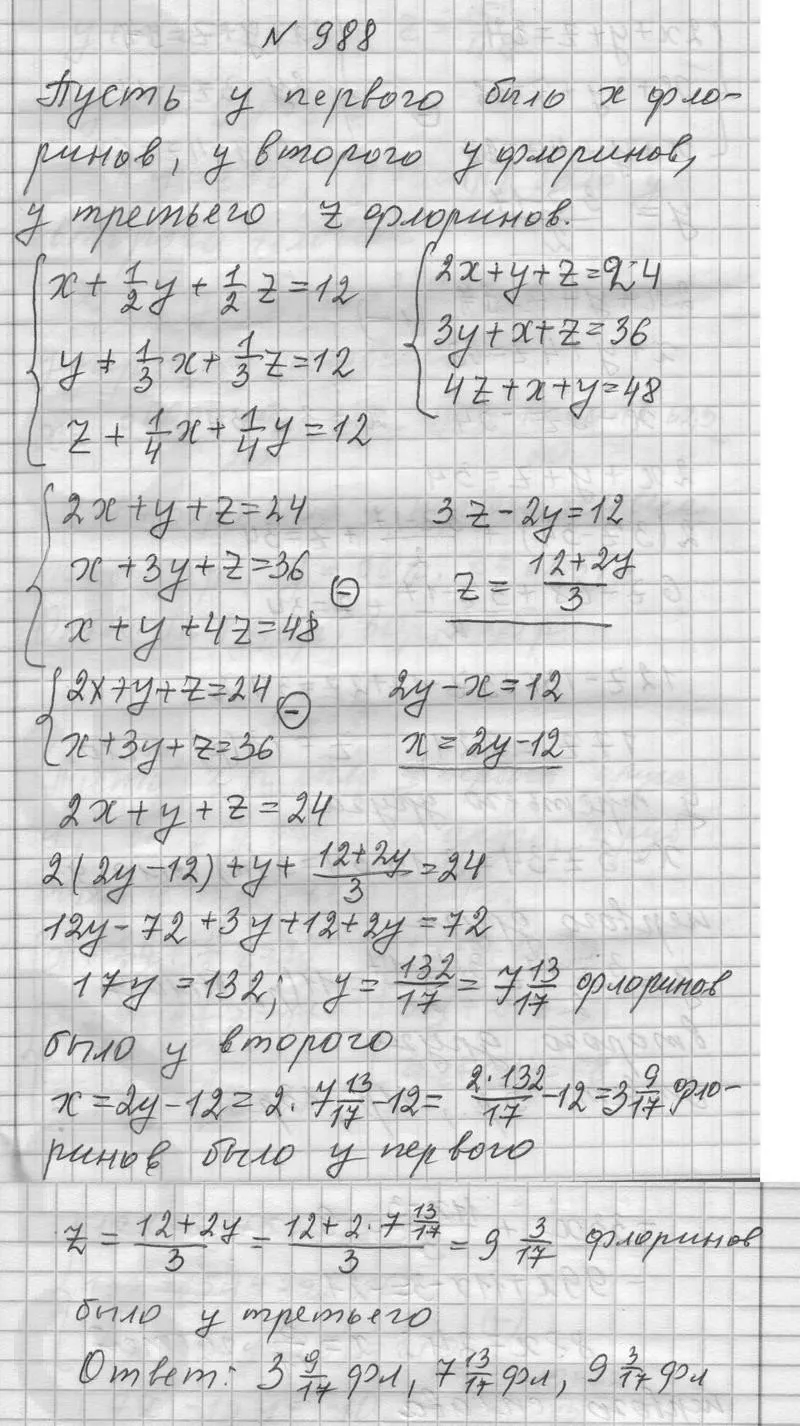 N 988
Пусть у первого было x фло-
ринов, у второго y флоринов,
у третьего z флоринов.
x + 1/2 y + 1/2 z = 12
y + 1/3 x + 1/3 z = 12
z + 1/4 x + 1/4 y = 12
2x + y + z = 24
3y + x + z = 36
4z + x + y = 48
2x + y + z = 24
x + 3y + z = 36
x + y + 4z = 48 ⊖
3z - 2y = 12
z = (12 + 2y)/3
2x + y + z = 24 ⊖
x + 3y + z = 36
2y - x = 12
x = 2y - 12
2x + y + z = 24
2(2y - 12) + y + (12 + 2y)/3 = 24
12y - 72 + 3y + 12 + 2y = 72
17y = 132; y = 132/17 = 7 13/17 флоринов
было у второго
x = 2y - 12 = 2 · 7 13/17 - 12 = (2 · 132)/17 - 12 = 3 9/17 фло-
ринов было у первого
z = (12 + 2y)/3 = (12 + 2 · 7 13/17)/3 = 9 3/17 флоринов
было у третьего
Ответ: 3 9/17 фл, 7 13/17 фл, 9 3/17 фл